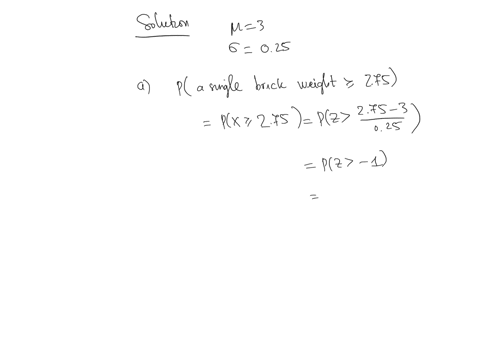 Solution μ=3
σ=0.25
a) P(a single brick weight ≥ 275)
= P(X ≥ 2.75) = P(Z > 2.75-3/0.25)
= P(Z > -1)
=